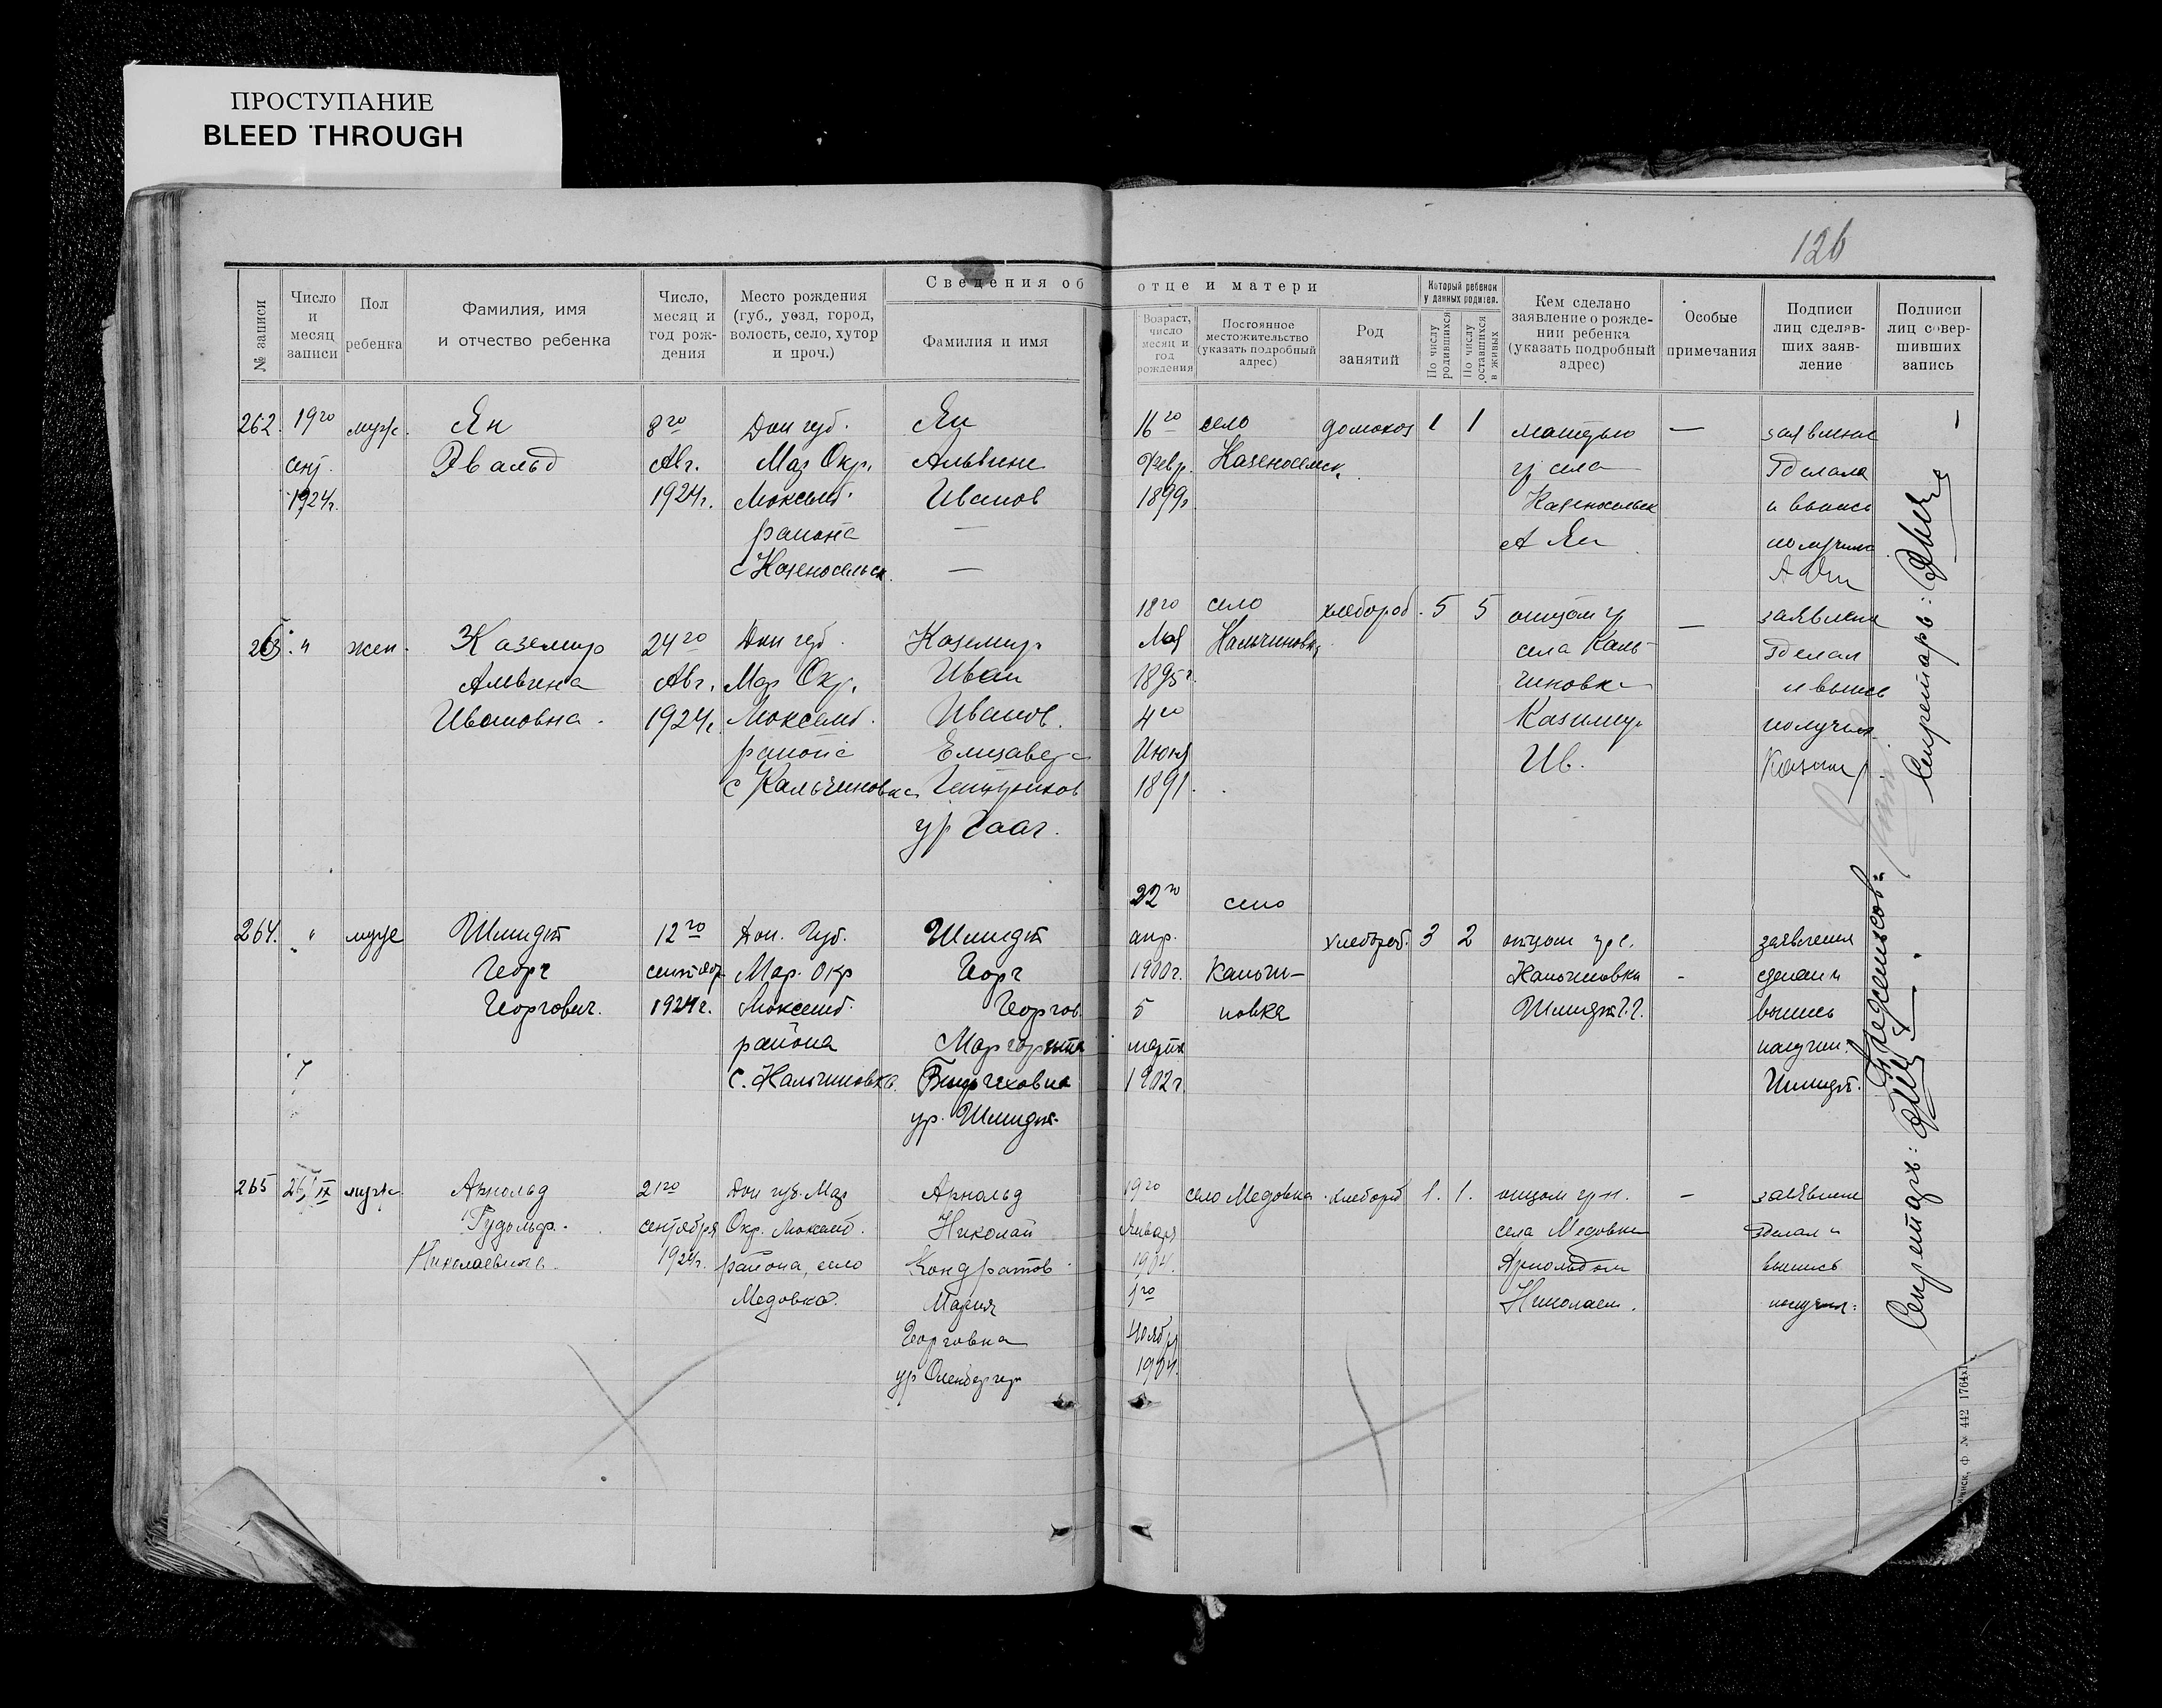 ПРОСТУПАНИЕ
BLEED THROUGH
126
№ записи
Число и месяц записи
Пол ребенка
Фамилия, имя и отчество ребенка
Число, месяц и год рождения
Место рождения (губ., уезд, город, волость, село, хутор и проч.)
Сведения об отце и матери
Фамилия и имя
Возраст, число месяц и год рождения
Постоянное местожительство (указать подробный адрес)
Род занятий
Который ребенок у данных родител.
По числу родившихся
По числу оставшихся в живых
Кем сделано заявление о рождении ребенка (указать подробный адрес)
Особые примечания
Подписи лиц сделавших заявление
Подписи лиц совершивших запись
262. 19го муж. Ян 8го Дон губ. Ян 16го село домохоз 1 1 матерью — заявление
сент. Эвальд Авг. Мар Окр. Альвине Февр. Казеносельск. гр села Зделала
1924г. 1924г. Моксимб. Иванов 1899г Казеносельск и выпись
района — А Ян получила
с Казеносельск. — А Ян
263. " жен. Каземир 24го Дон губ. Каземир 18го село хлебороб. 5 5 отцом гр — заявления
Альвина Авг. Мар Окр. Иван Мая Кальчиновка села Каль- Зделал
Ивановна. 1924г. Моксимб. Иванов. 1895г. чиновка и выпись
района Елизавета 4го Казимир получил.
с Кальчиновка Июня Ив. Казими
1891.
ур Гааг.
264. " муж Шмидт 12го Дон. Губ. Шмидт 22го село хлебороб. 3 2 отцом гр с. заявления
Георг сентябр Мар. Окр Георг апр. 1900г. Кальчи- Кальчиновки - сделал и
Георгович. 1924г. Моксимб. Георгов. 5 новка Шмидт Г.Г. выпись
района Маргорита марта получил.
с. Кальчиновка. 1902г. Шмидт.
ур. Шмидт.
265 26/IX муж Арнольд 21го Дон губ. Мар Арнольд 19го село Медовка хлебороб 1. 1. отцом гр н. — заявление
Рудольф. сентября Окр. Моксимб. Николай Января села Медовки Зделал и
Николаевич. 1924г. района, село Кондратов 1904. Арнольдом выпись
Медовка. Мария Николаем. получил.
Георговна Ноября
1904.
Секретарь:
Секретарь: